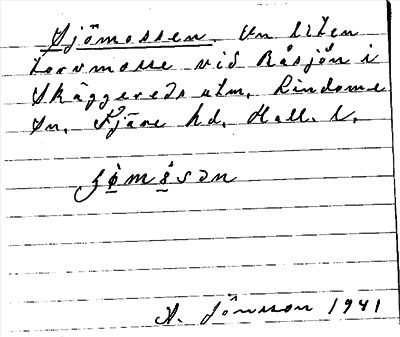 Sjömossen. En liten
torvmosse vid Råsjön i
Skäggereds utm. Lindome
sn. Fjäre hd. Hall. l.
A. Jönsson 1941